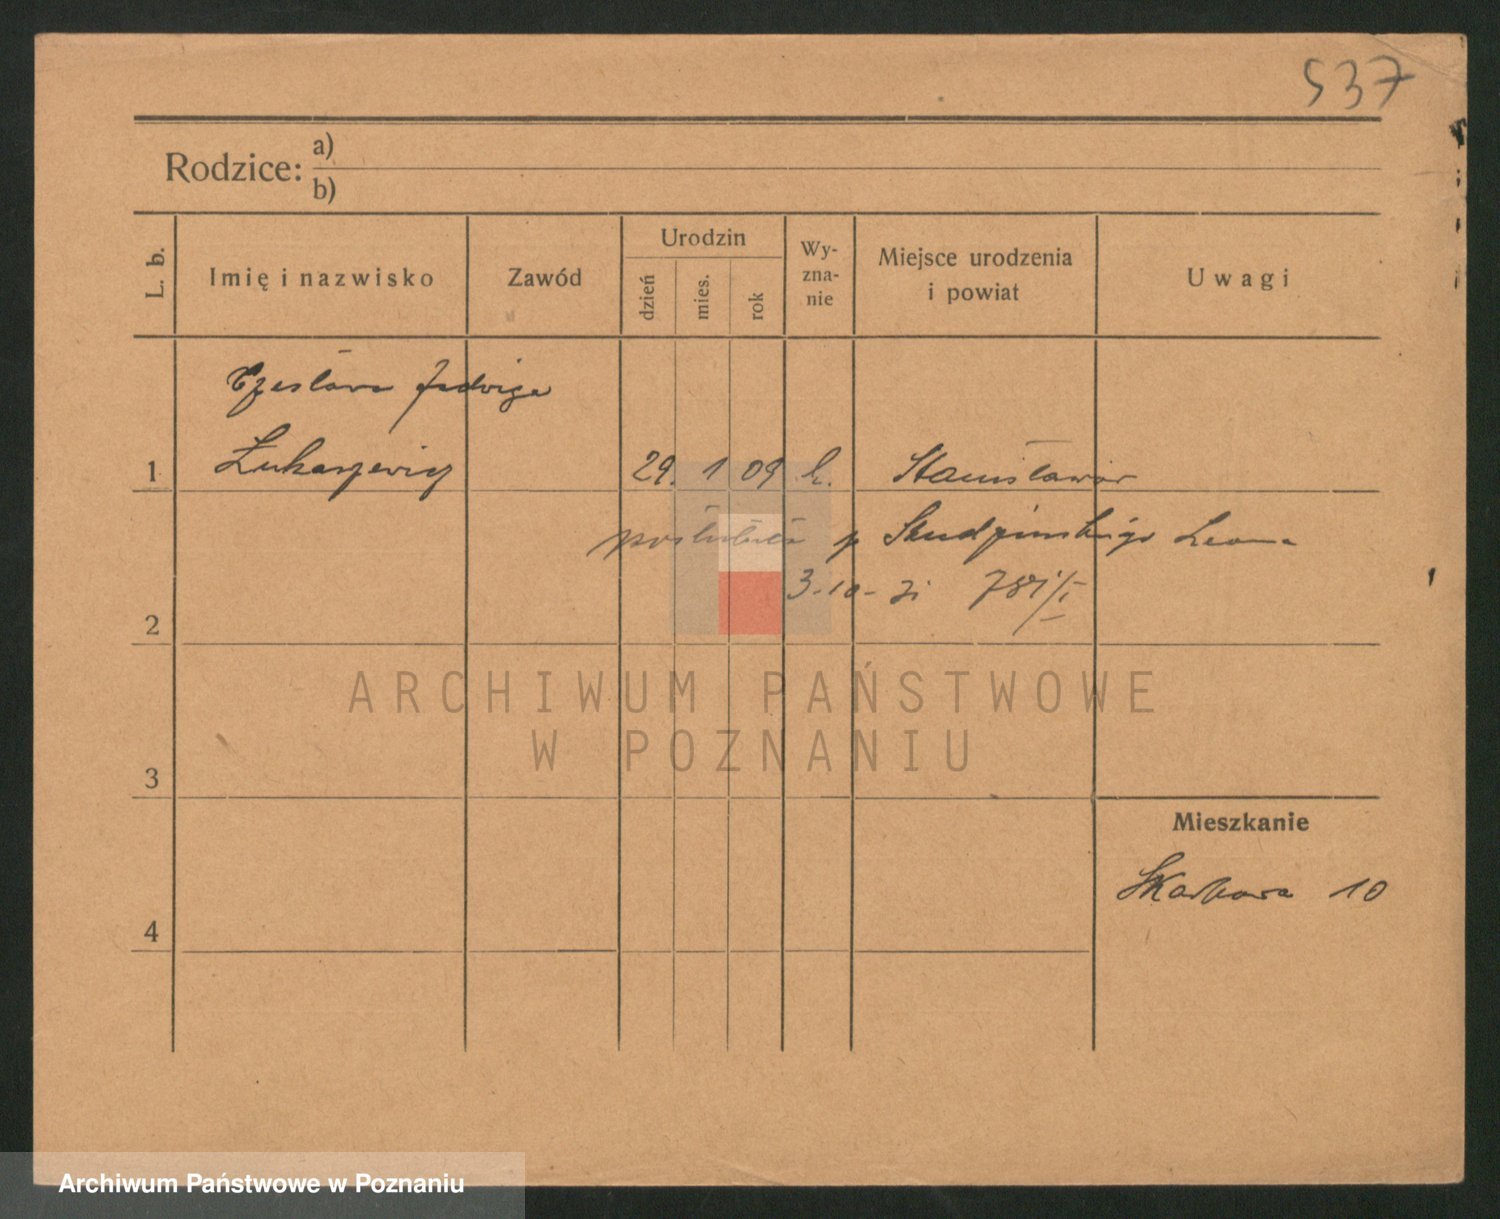 537
Rodzice: a)
b)
L. b. Imię i nazwisko Zawód Urodzin dzień mies. rok Wy-zna-nie Miejsce urodzenia i powiat Uwagi
Czesława Jadwiga
1 Łukaszewicz 29. 1 09 k. Stanisławów
poślubiła p Studzińskiego Leona
2 3-10-31 781/I
ARCHIWUM PAŃSTWOWE
W POZNANIU
3
Mieszkanie
Skarbowa 10
4
Archiwum Państwowe w Poznaniu